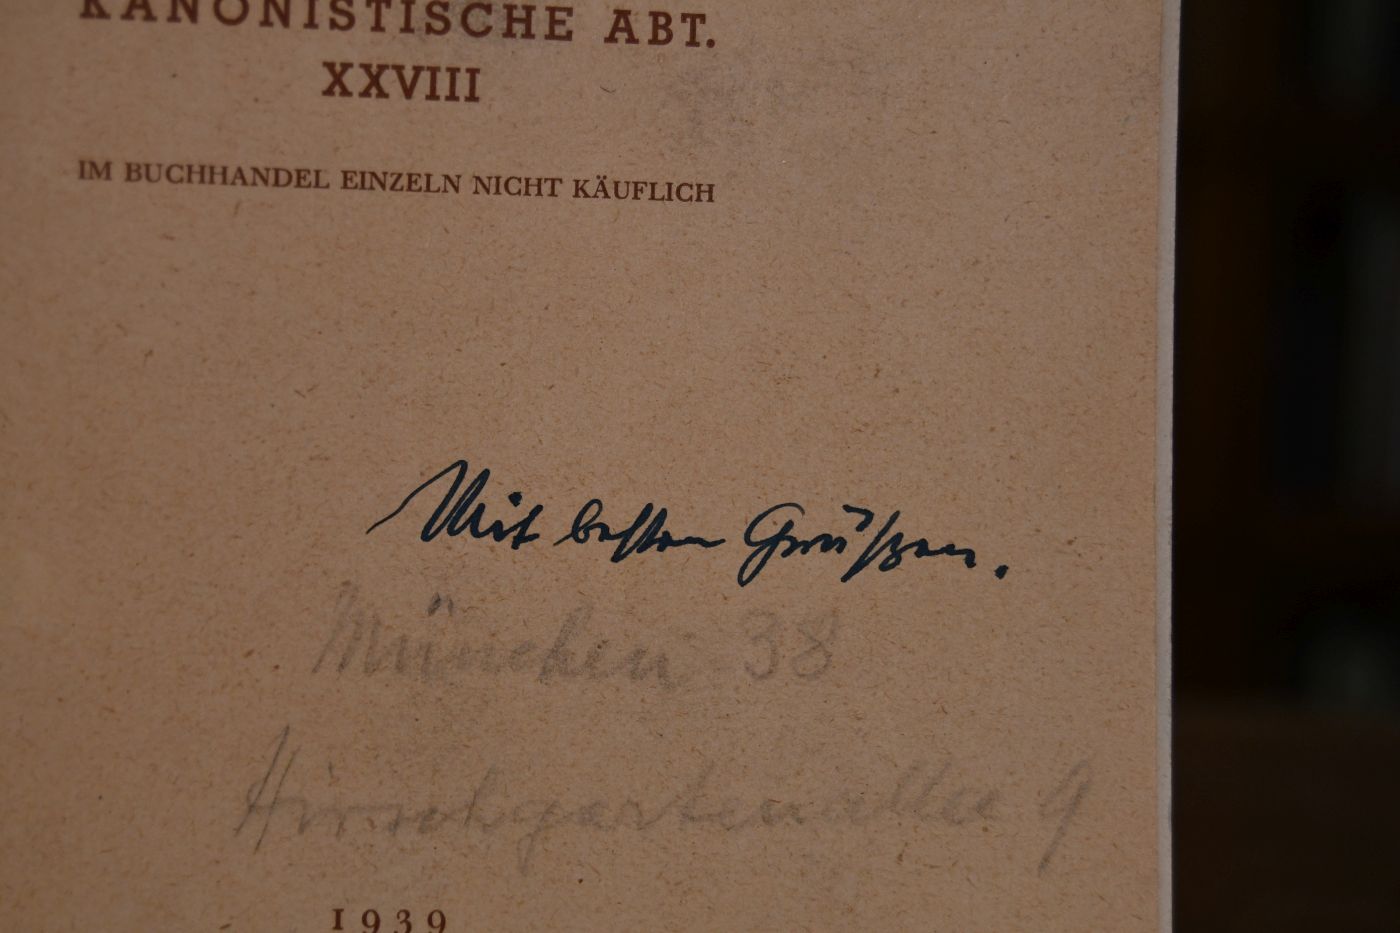 KANONISTISCHE ABT.
XXVIII
IM BUCHHANDEL EINZELN NICHT KÄUFLICH
Mit besten Grüßen.
München 38
Hirschgartenallee 9
1939